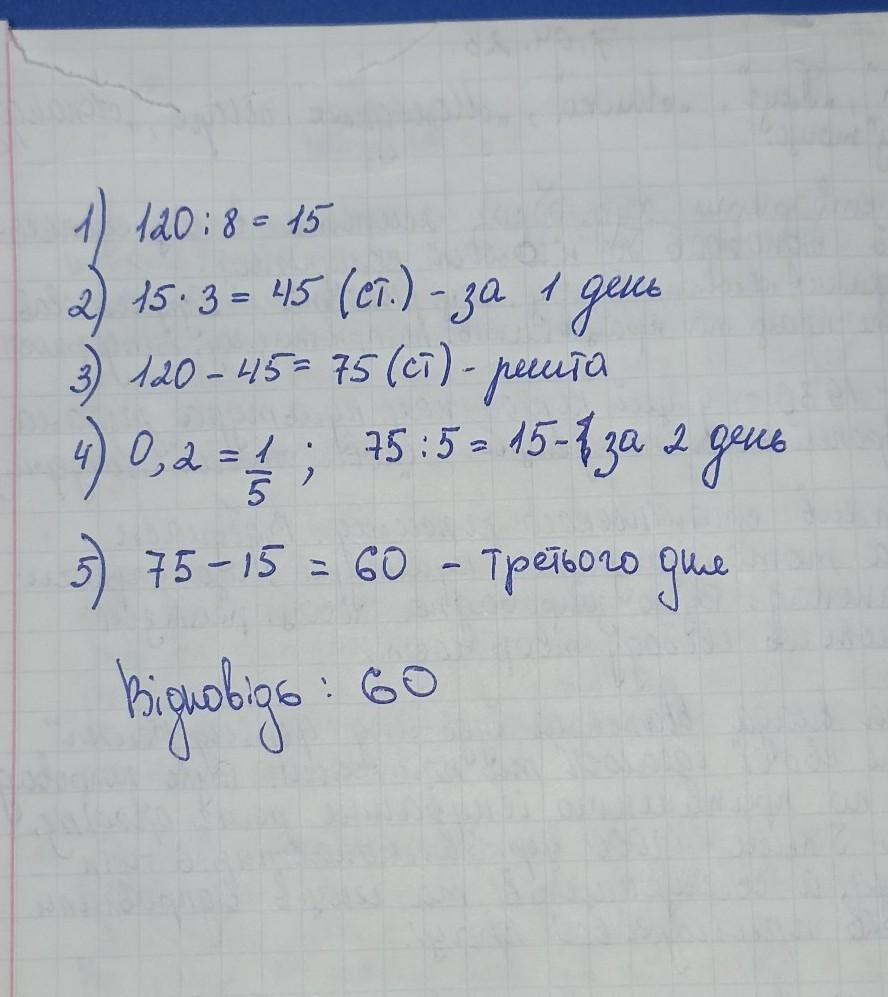 1) 120 : 8 = 15
2) 15 · 3 = 45 (ст.) - за 1 день
3) 120 - 45 = 75 (ст) - решта
4) 0,2 = 1/5 ; 75 : 5 = 15 - за 2 день
5) 75 - 15 = 60 - третього дня
Відповідь : 60